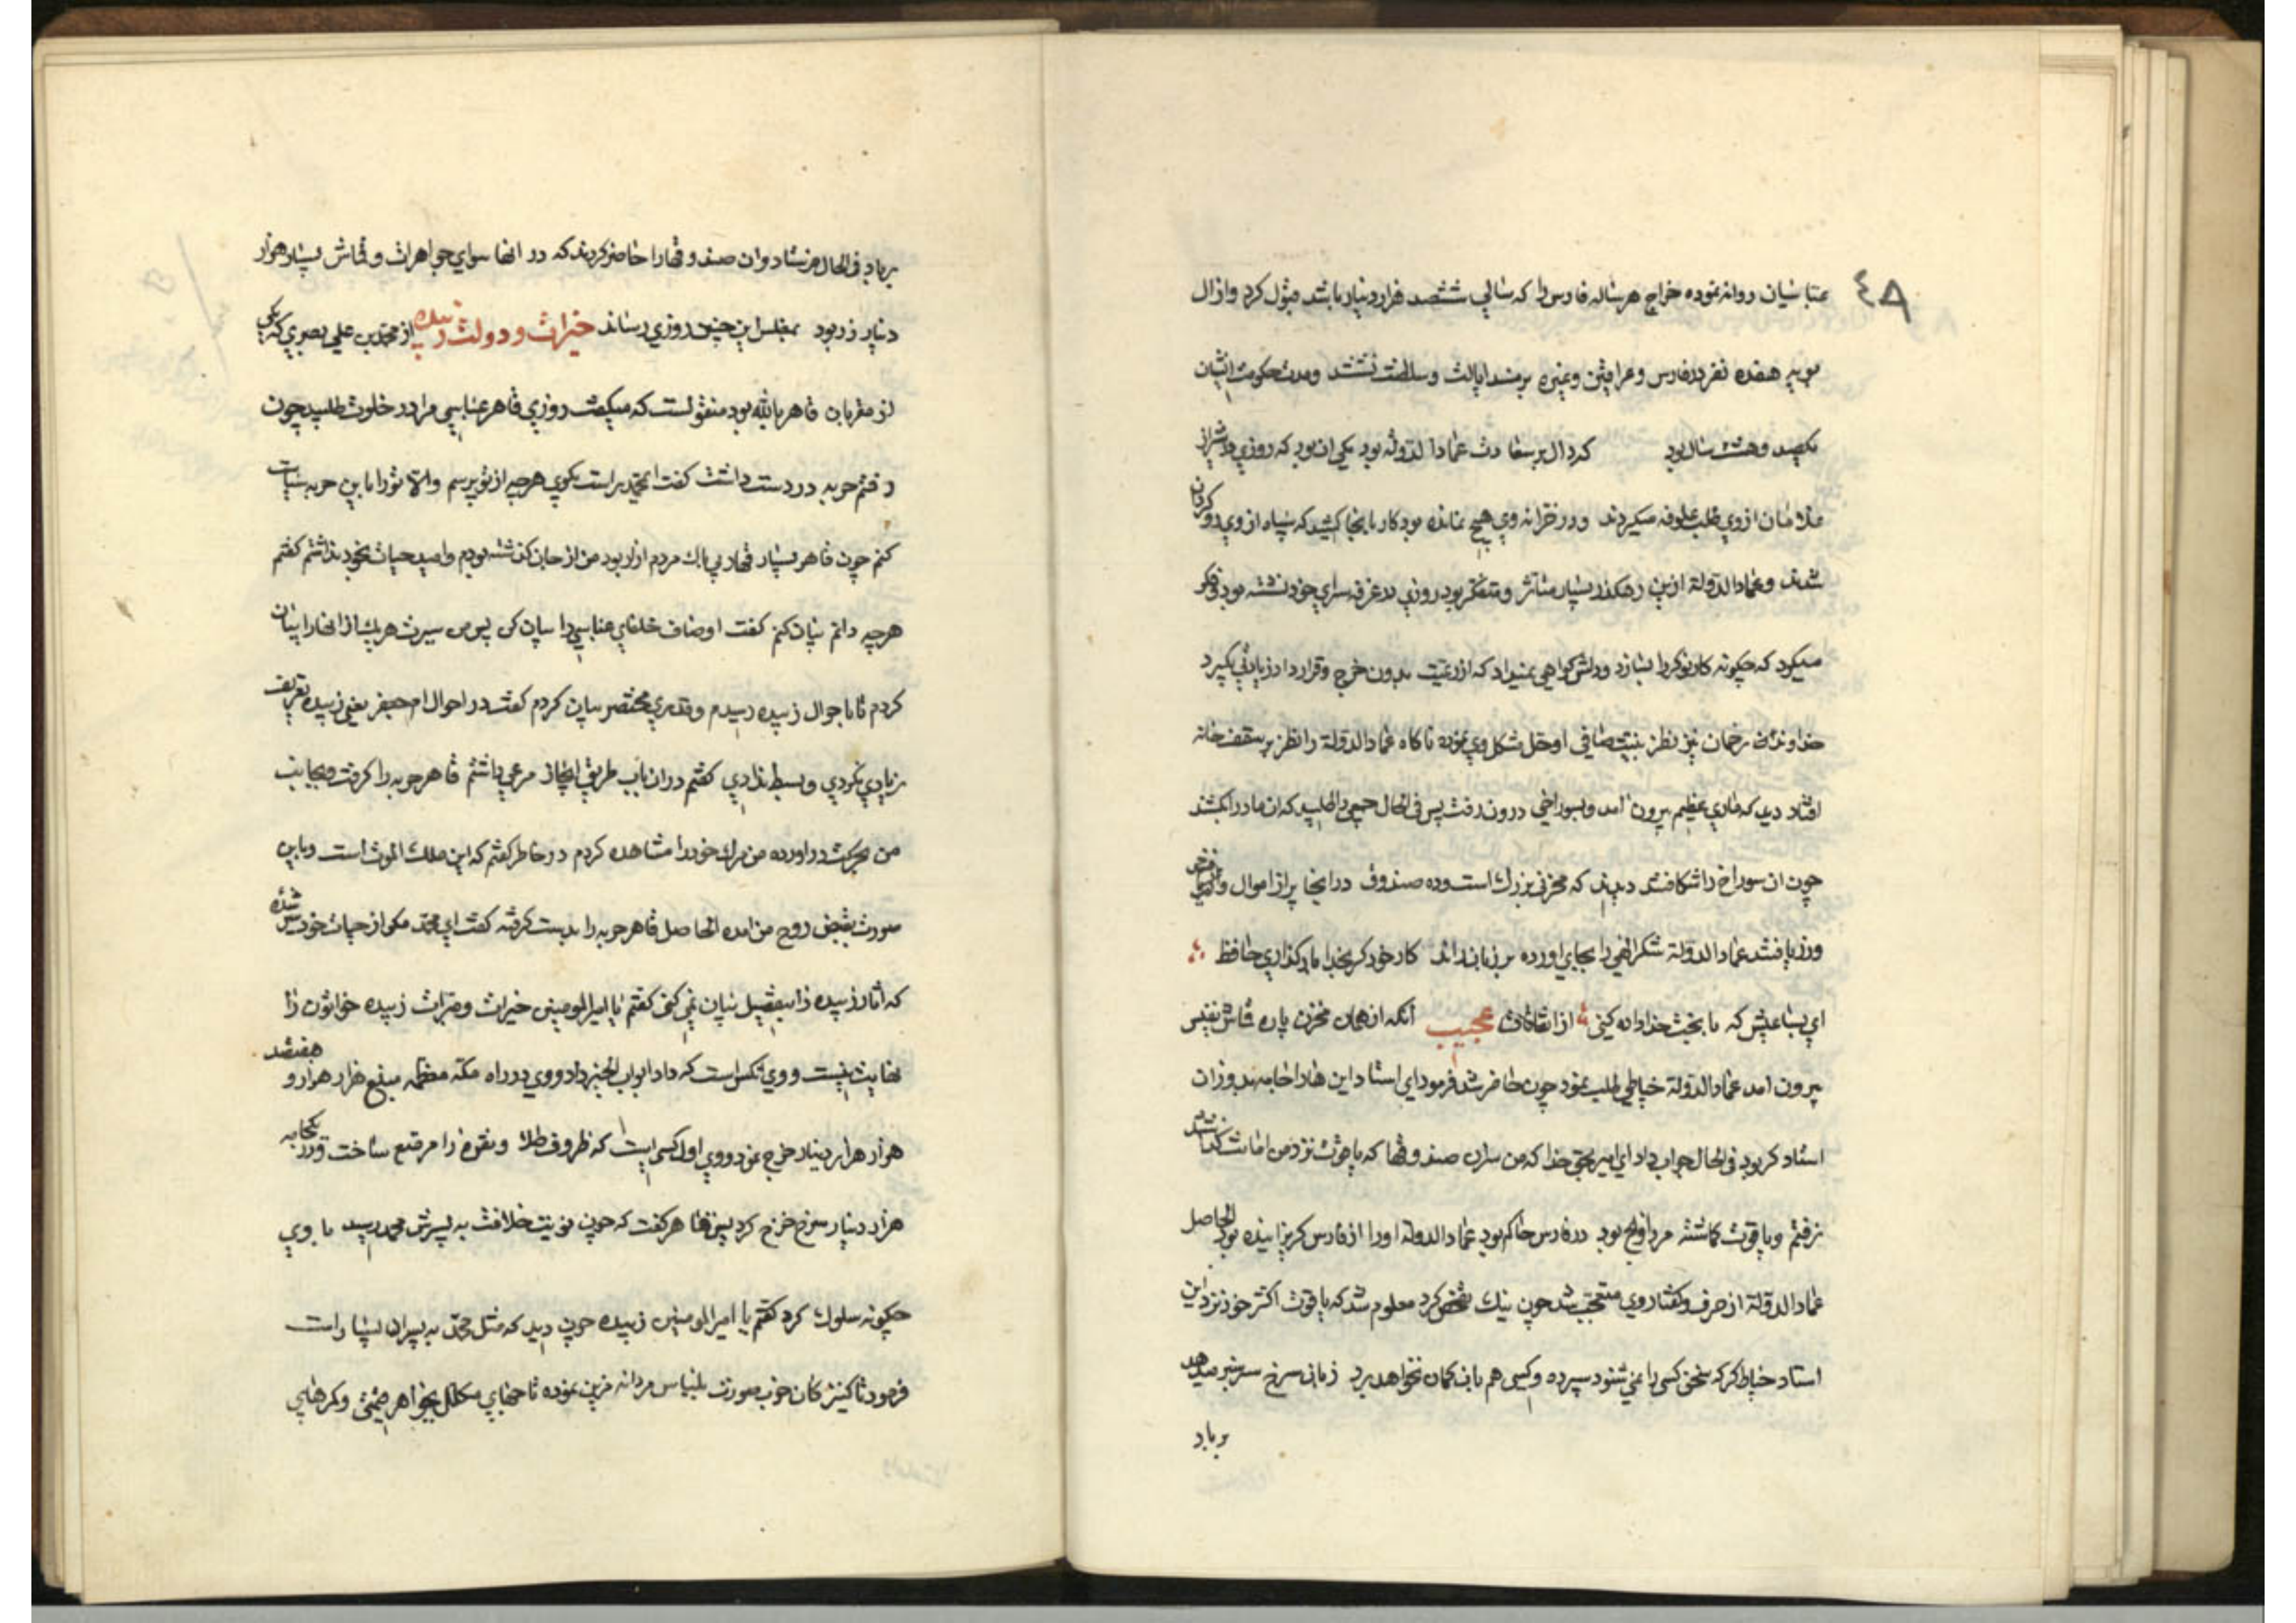 ٤٨
عباسیان روانه نموده خراج هرساله فارس را که سالی ششصد هزار دینار باشد قبول کرد و از ال
بویه هفده نفر در فارس و عراقین و غیره بر مسند ایالت و سلطنت نشستند و مدت حکومت ایشان
یکصد و هشت سال بود که دال بر سعادت عماد الدولة بود یکی ان بود که روزی در شیراز
ملازمان از وی طلب علوفه میکردند و در خزانه وی هیچ نمانده بود کار بانجا کشید که سپاه از وی رو کردان
شدند و عماد الدولة ازین رهکذر بسیار متاثر و متفکر بود روزی در غرفه سرای خود نشسته بود و فکر
میکرد که چکونه کار نوکر را بسازد و دلش کواهی نمیداد که از رعیت بدون خرج و قرارداد زیادتی بکیرد
خداوند رحمان نیز نظر بنیت صافی او حل مشکل وی نموده ناکاه عماد الدولة را نظر بر سقف خانه
افتاد دید که ماری عظیم بیرون امد و بسوراخی درون رفت پس فی الحال جمعی را طلبید که ان مار را بکشند
چون ان سوراخ را شکافتند دیدند که مخزنی بزرک است و ده صندوق در انجا پر از اموال و
وزر یافتند عماد الدولة شکر الهی را بجای اورده بر زبان راند کار خود کر بخدا بازکذاری حافظ
ای بسا عیش که با بخت خداداده کنی از اتفاقات عجیب انکه از همان مخزن پاره قماش نفیس
بیرون امد عماد الدولة خیاطی طلب نمود چون حاضر شد فرمود ای استاد این هارا جامه بدوز ان
استاد کر بود فی الحال جواب داد ای امیر بحق خدا که من بران صندوقها که یاقوت نزد من امانت کذاشته
نرفتم و یاقوت کماشته مرداویج بود در فارس حاکم بود عماد الدولة اورا از فارس کریزانیده بود الحاصل
عماد الدولة از حرف و کفتار وی متعجب شد چون نیک تفحص کرد معلوم شد که یاقوت اکثر خود نزد این
استاد خیاط کر که سخن کسی را نمی شنود سپرده و کسی هم باین کمان نخواهد برد زبان سرخ سر سبز میدهد
برباد
برباد فی الحال فرستاد و ان صندوقهارا حاضر کردند که در انها سوای جواهرات و قماش بسیار هزار
دینار زر بود بمفلس این چنین روزی رساند خیرات و دولت زبیده از محمد بن علی بصری که یکی
از مقربان قاهر بالله بود منقولست که میکفت روزی قاهر عباسی مرا در خلوت طلبید چون
رفتم حربه در دست داشت کفت ای محمد براست بکوی هرچه از تو پرسم والا تورا باین حربه سیاست
کنم چون قاهر بسیار قهار بی باک مردم ازار بود من از جان کذشته بودم و امید حیات بخود نداشتم کفتم
هرچه دانم بیان کنم کفت اوصاف خلفای عباسی را بیان کن پس من سیرت هریک از انهارا بیان
کردم تا باحوال زبیده رسیدم و قدری مختصر بیان کردم کفت در احوال ام جعفر یعنی زبیده تعریف
زیادی نکردی و بسط ندادی کفتم در ان باب طریق ایجاز مرعی داشتم قاهر حربه را کرفت و بجانب
من بحرکت دراورده من مرک خودرا مشاهده کردم در خاطر کفتم که این ملک الموت است و باین
صورت بقبض روح من امده الحاصل قاهر حربه را بدست کرفته کفت ای محمد مکر از حیات خود سیر شده
که اثار زبیده را بتفصیل بیان نمی کنی کفتم یا امیر المومنین خیرات و مبرات زبیده خواتون را
نهایت نیست و وی انکس است که داد ابواب الخیر داد و وی در راه مکه معظمه مبلغ هزار هزار و هفتصد
هزار هزار دینار خرج نمود و وی اول کسی است که ظروف طلا و نقره را مرصع ساخت و در یکجامه
هزار دینار سرخ خرج کرد پس قاهر کفت که چون نوبت خلافت به پسرش محمد رسید با وی
چکونه سلوک کرد کفتم یا امیر المومنین زبیده چون دید که میل محمد به پسران بسیار است
فرمود تا کنیزکان خوب صورت بلباس مردانه مزین نموده تاجهای مکلل بجواهر قیمتی و کمرهای